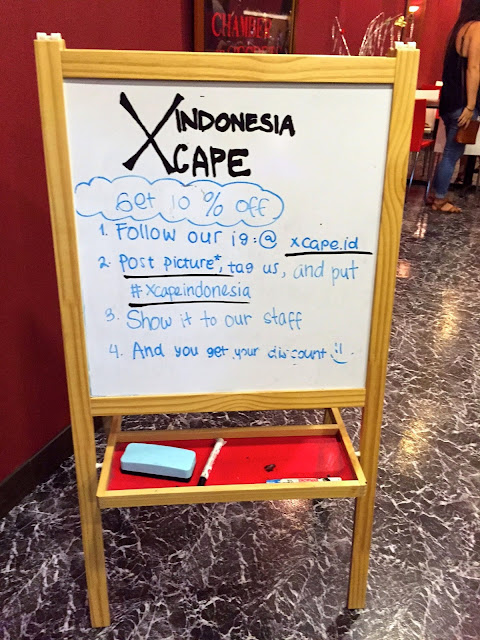 CHAMBER
XINDONESIA
XCAPE
Get 10 % off
1. Follow our ig: @ xcape.id
2. Post picture*, tag us, and put
#xcapeindonesia
3. Show it to our staff
4. And you get your discount :).